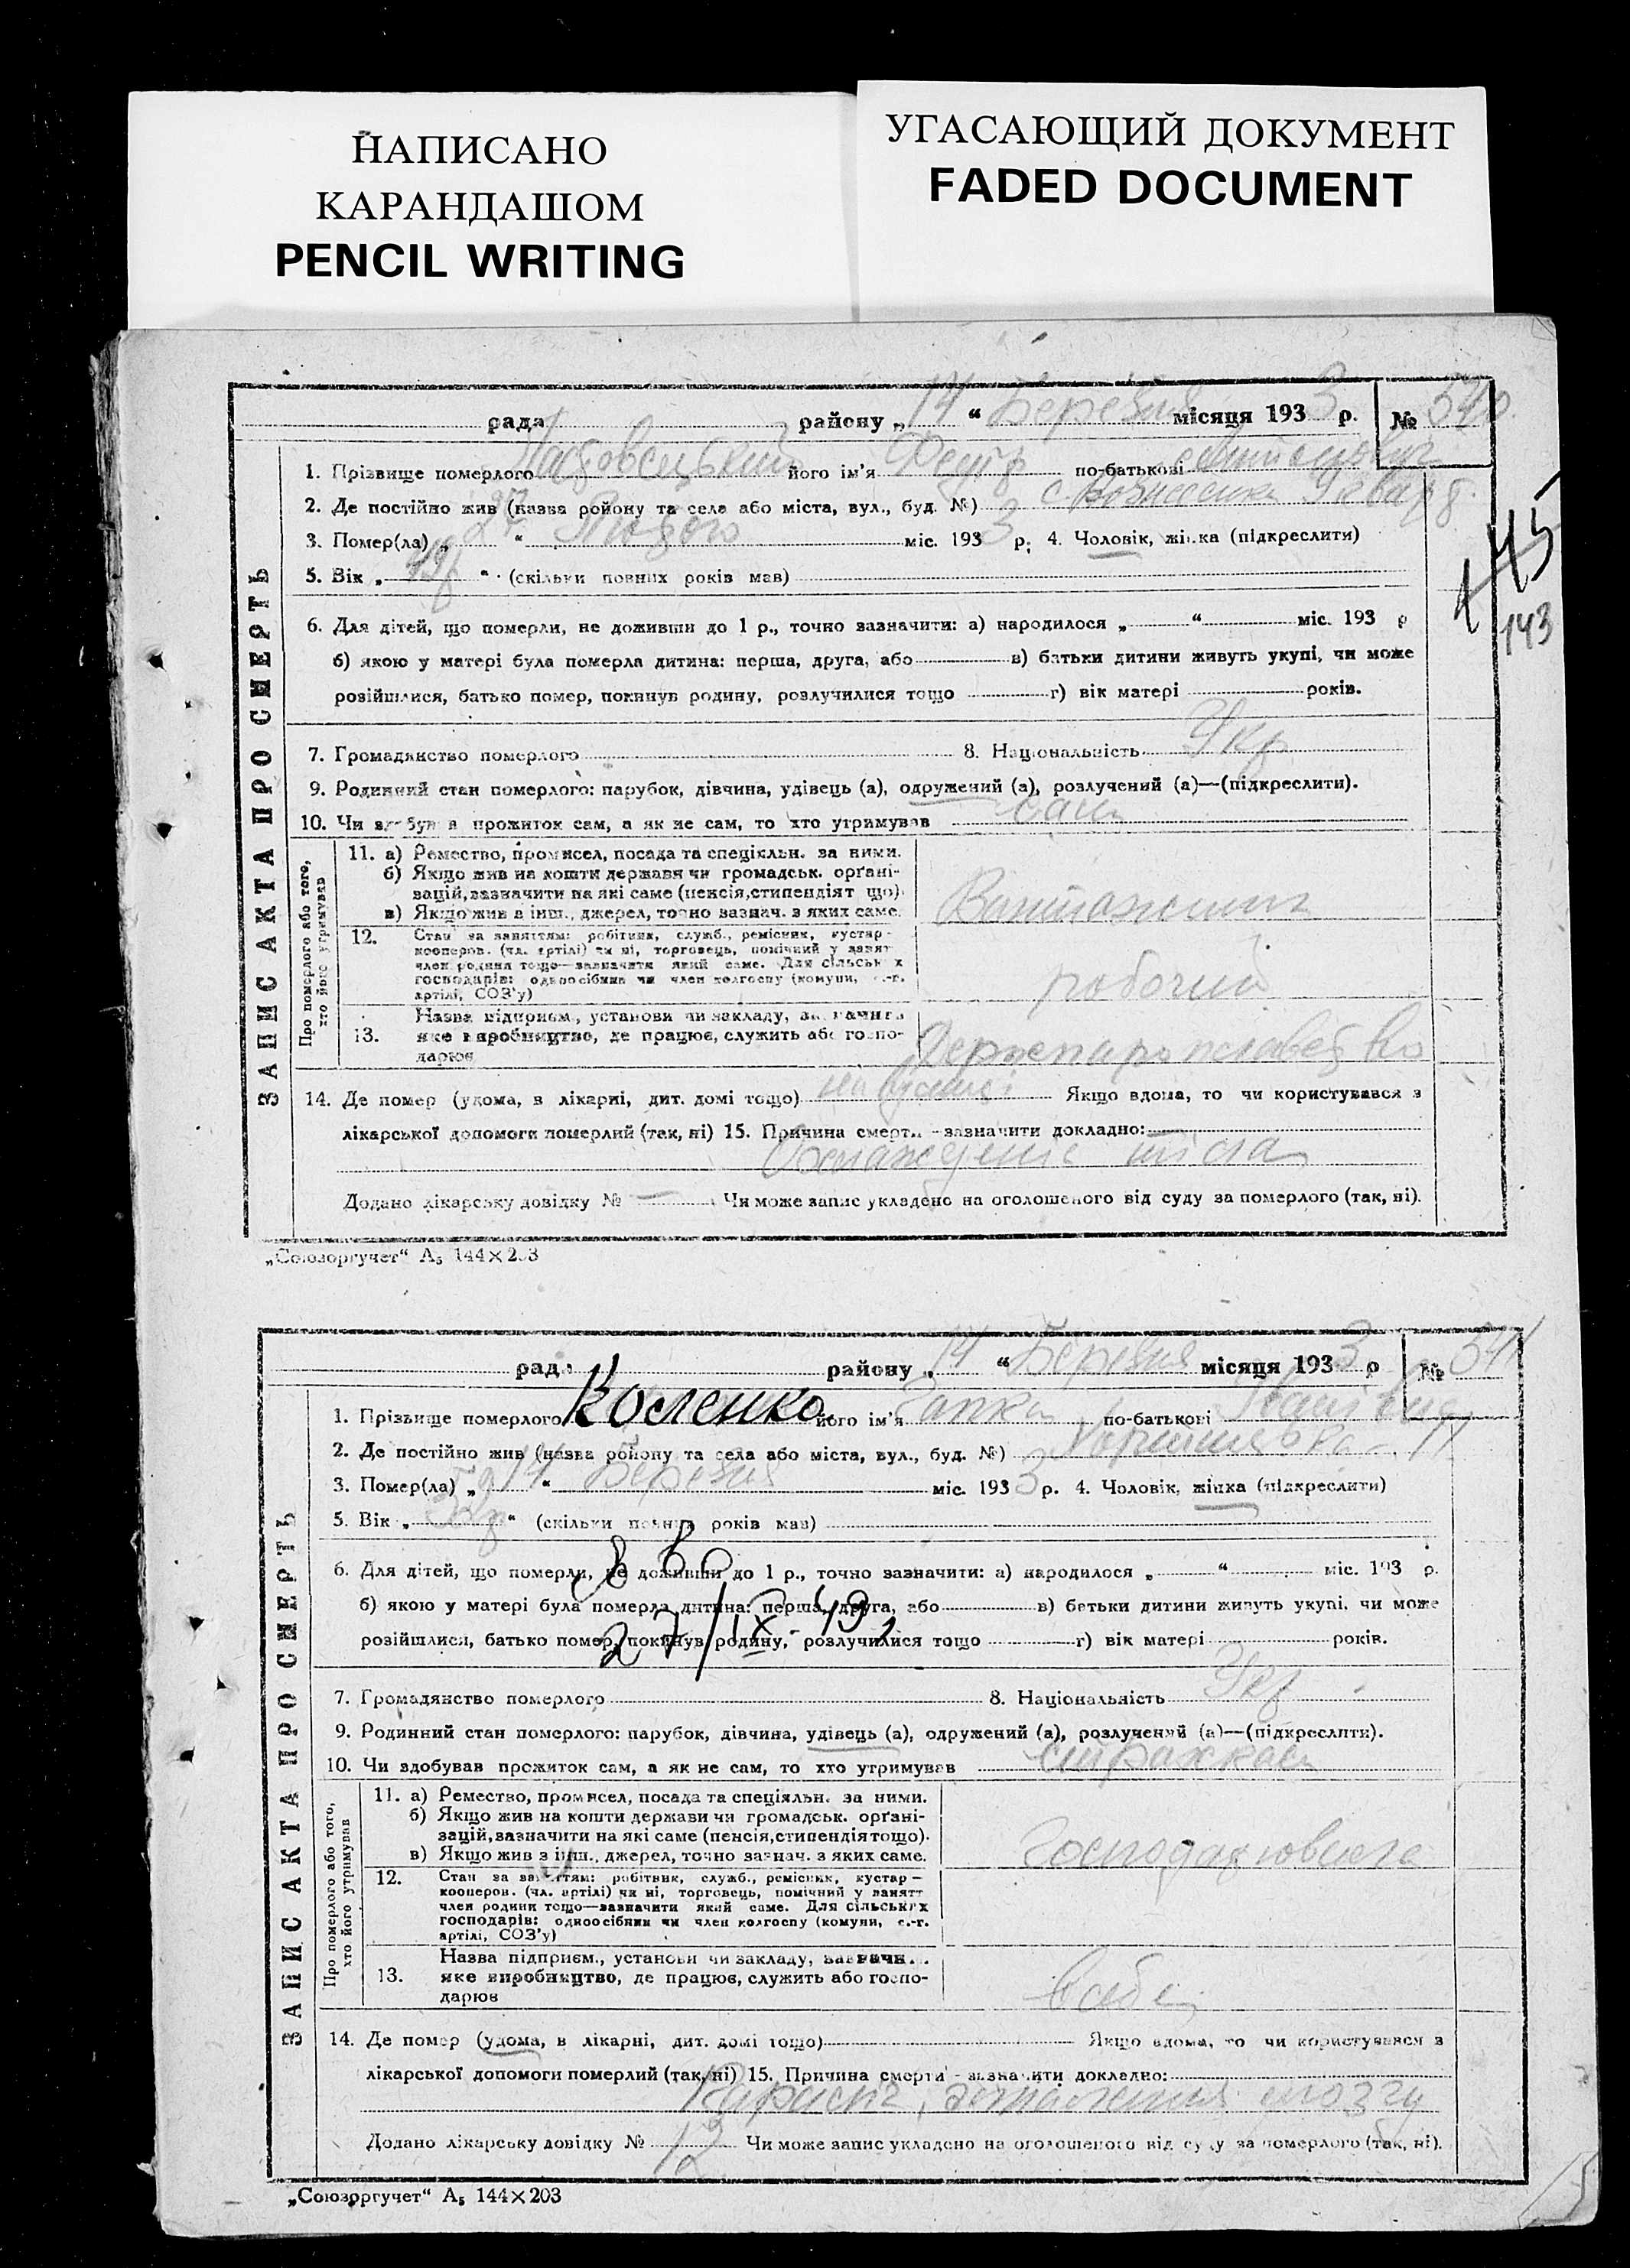 НАПИСАНО
КАРАНДАШОМ
PENCIL WRITING
УГАСАЮЩИЙ ДОКУМЕНТ
FADED DOCUMENT
ЗАПИС АКТА ПРО СМЕРТЬ
рада району „ 14 “ Березня місяця 193 3 р. № 540
1. Прізвище померлого його ім'я Федір по-батькові
2. Де постійно жив (назва ройону та села або міста, вул., буд. №) с. Вознесенка
3. Помер(ла) „ 27 “ Лютого міс. 193 3 р. 4. Чоловік, жінка (підкреслити)
5. Вік „ “ (скільки повних років мав)
145
143
6. Для дітей, що померли, не доживши до 1 р., точно зазначити: а) народилося „ “ міс. 193 р
б) якою у матері була померла дитина: перша, друга, або в) батьки дитини живуть укупі, чи може
розійшлися, батько помер, покинув родину, розлучилися тощо г) вік матері років.
7. Громадянство померлого 8. Національність Укр
9. Родинний стан померлого: парубок, дівчина, удівець (а), одружений (а), розлучений (а)—(підкреслити).
10. Чи здобував прожиток сам, а як не сам, то хто утримував сам
Про померлого або того, хто його утримував
11. а) Ремество, промисел, посада та спеціяльн. за ними.
б) Якщо жив на кошти держави чи громадськ. орґані-
зацій, зазначити на які саме (пенсія, стипендіят що).
в) Якщо жив з інш., джерел, точно зазнач. з яких саме.
Вантажник
12. Стан за заняттям: робітник, служб., ремісник, кустар-
кооперов. (чл. артілі) чи ні, торговець, помічний у занят
член родини тощо—зазначити який саме. Для сільськ х
господарів: одноосібник чи член колгоспу (комуни, с.-г.
артілі, СОЗ'у)
робочий
13. Назва підприєм., установи чи закладу, зазначить
яке виробництво, де працює, служить або госпо-
дарює
14. Де помер (удома, в лікарні, дит. домі тощо) на вулиці Якщо вдома, то чи користувався з
лікарської допомоги померлий (так, ні) 15. Причина смерти - зазначити докладно:
Охлаждение тіла
Додано лікарську довідку № — Чи може запис укладено на оголошеного від суду за померлого (так, ні).
„Союзоргучет“ А5 144×203
ЗАПИС АКТА ПРО СМЕРТЬ
рада району „ 14 “ Березня місяця 193 3 р № 541
1. Прізвище померлого Коленко його ім'я Ганка по-батькові Іванівна
2. Де постійно жив (назва ройону та села або міста, вул., буд. №)
3. Помер(ла) „ 14 “ Березня міс. 193 3 р. 4. Чоловік, жінка (підкреслити)
5. Вік „ “ (скільки повних років мав)
6. Для дітей, що померли, не доживши до 1 р., точно зазначити: а) народилося „ “ міс. 193 р.
б) якою у матері була померла дитина: перша, друга, або в) батьки дитини живуть укупі, чи може
27/IX-
розійшлися, батько помер, покинув родину, розлучилися тощо г) вік матері років.
7. Громадянство померлого 8. Національність Укр
9. Родинний стан померлого: парубок, дівчина, удівець (а), одружений (а), розлучений (а)—(підкреслити).
10. Чи здобував прожиток сам, а як не сам, то хто утримував страхкаса
Про померлого або того, хто його утримував
11. а) Ремество, промисел, посада та спеціяльн. за ними.
б) Якщо жив на кошти держави чи громадськ. орґані-
зацій, зазначити на які саме (пенсія, стипендія тощо).
в) Якщо жив з інш., джерел, точно зазнач. з яких саме.
12. Стан за заняттям: робітник, служб., ремісник, кустар—
кооперов. (чл. артілі) чи ні, торговець, помічний у занятт
член родини тощо—зазначити який саме. Для сільських
господарів: одноосібник чи член колгоспу (комуни, с.-г.
артілі, СОЗ'у)
13. Назва підприєм., установи чи закладу, зазначи..
яке виробництво, де працює, служить або госпо-
дарює
в себе
14. Де помер (удома, в лікарні, дит. домі тощо) Якщо вдома, то чи користувався з
лікарської допомоги померлий (так, ні) 15. Причина смерти - зазначити докладно:
мозгу
Додано лікарську довідку № 12 Чи може запис укладено на оголошеного від суду за померлого (так, ні).
„Союзоргучет“ А5 144×203